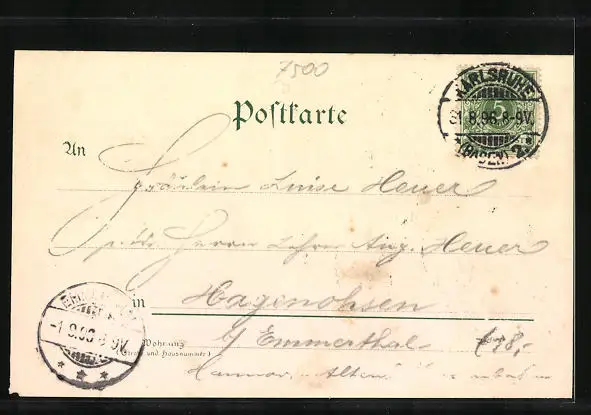 7500
Postkarte
KARLSRUHE
5
31.8.96. 8-9V.
(BADEN) 2.
An
Fräulein Luise Heuer
Herrn Lehrer Aug. Heuer
in Hagenohsen
Wohnung
(Straße und Hausnummer)
b/ Emmerthal
Hannov. - Alten